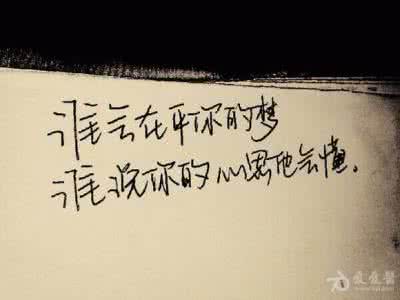 谁会在乎你的梦
谁说你的心思他会懂。
爱爱医